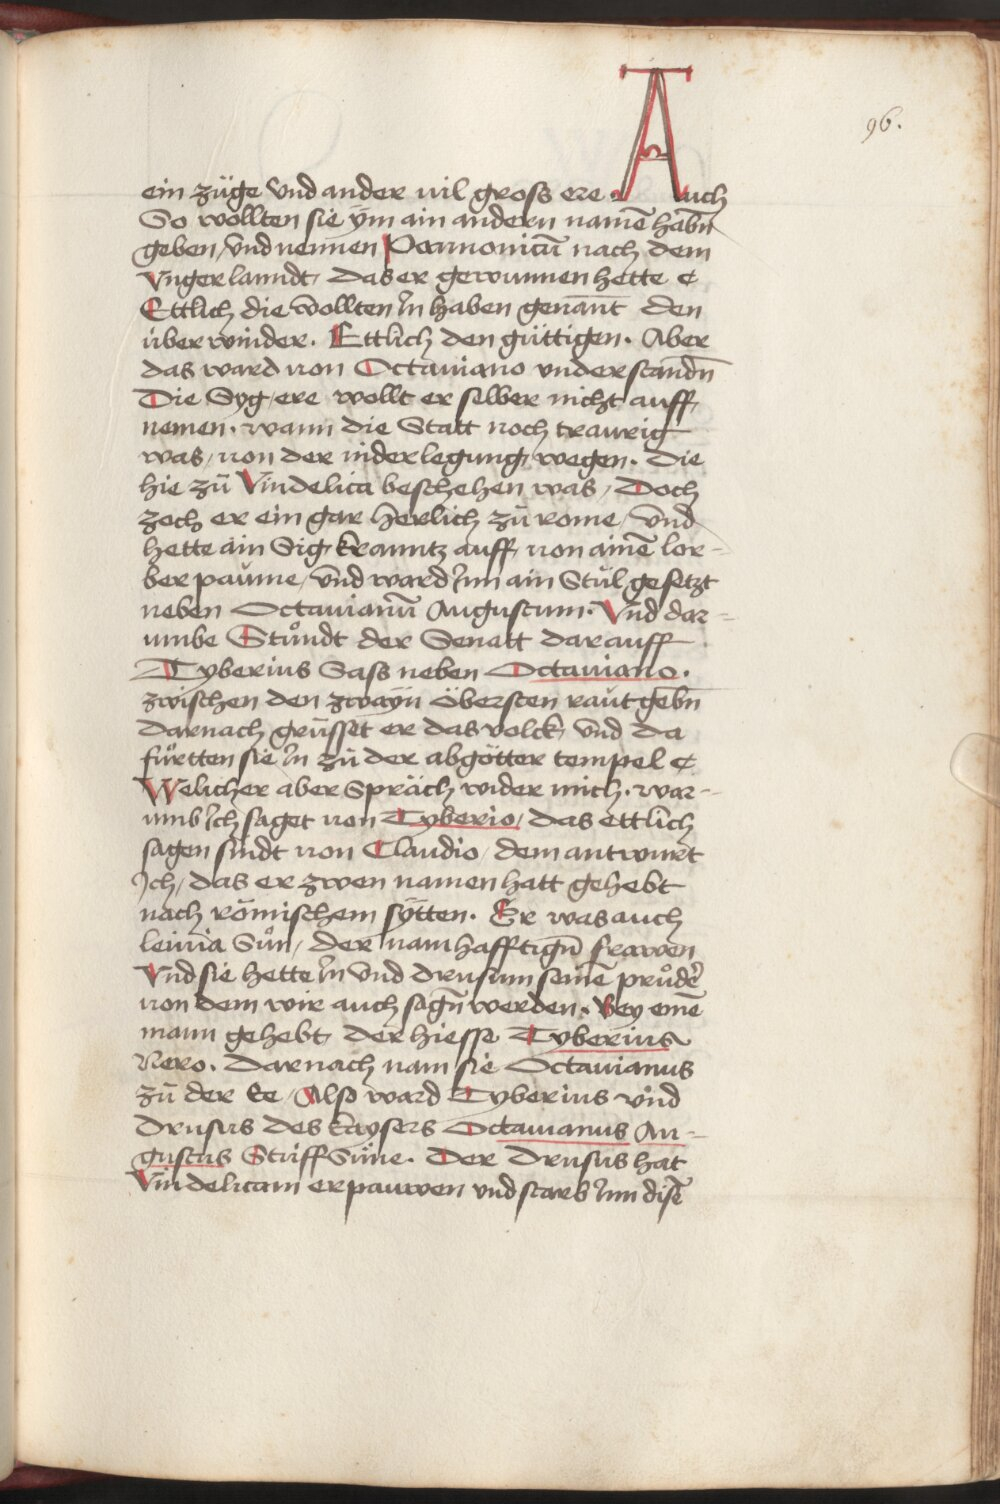 96.
ein züge vnd ander vil gross ere Auch
So wollten sie ÿm ain andern namē habn̄
geben, vnd nennen Pannonicū nach dem
Vngerlanndt, das er gewunnen hette ⁊c
Ettlich die wollten In haben genānt den
überwinder. Ettlich den güttigen. Aber
das ward von Octauiano vnderstandn̄
Die Syg ere wollt er selber nicht auff
nemen. wann die Statt noch traurig
was, von der niderlegung wegen. Die
hie zů Vindelica beschehen was, Doch
zoch er ein gar herlich zů rome, vnd
hette ain Sig kranntz auff, von ainē lor-
ber paume, vnd ward Im ain Stůl gesetzt
neben Octauianū Augustum. Vnd dar-
umbe Stůndt der Senatt darauff
Tyberius Sass neben Octauiano.
zwischen den zwaÿn öbersten raut gebn̄
darnach grüsset er das volck, vnd da
fůrtten sie In zů der abgötter tempel ⁊c
Welicher aber Spräch wider mich. war-
umb Ich saget von Tyberio, das ettlich
sagen sindt von Claudio, dem antwurt
Ich, das er zwen namen hatt gehebt
nach römischem sÿtten. Er was auch
leiuia Sůn, der namhafftign̄ frawen
Vnd sie hette In vnd drusum seinē průder
von dem wir auch sagn̄ werden. Bey einē
mann gehebt, der hiesse Tyberius
Nero. Darnach nam sie Octauianus
zů der Ee, Also ward Tyberius vnd
drusus des kaysers Octauianus Au-
gustus Stüff Süne. Der Drusus hat
Vindelicam erpauwen vnd starb Inn disē